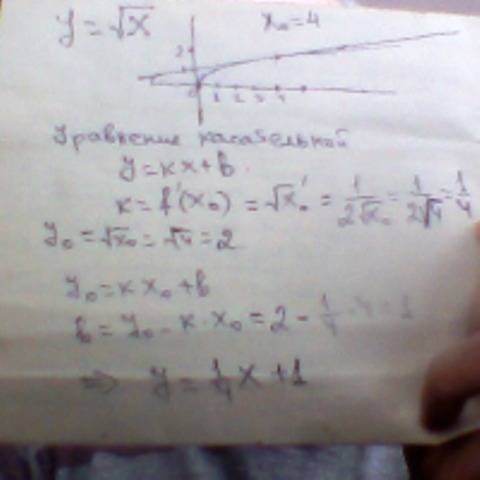 y = √x x₀ = 4
2
1
0 1 2 3 4
Уравнение касательной
y = кx + в.
к = f'(x₀) = √x₀' = 1/(2√x₀) = 1/(2√4) = 1/4
y₀ = √x₀ = √4 = 2
y₀ = к x₀ + в
в = y₀ - к · x₀ = 2 - 1/4 · 4 = 1
⇒ y = 1/4 x + 1